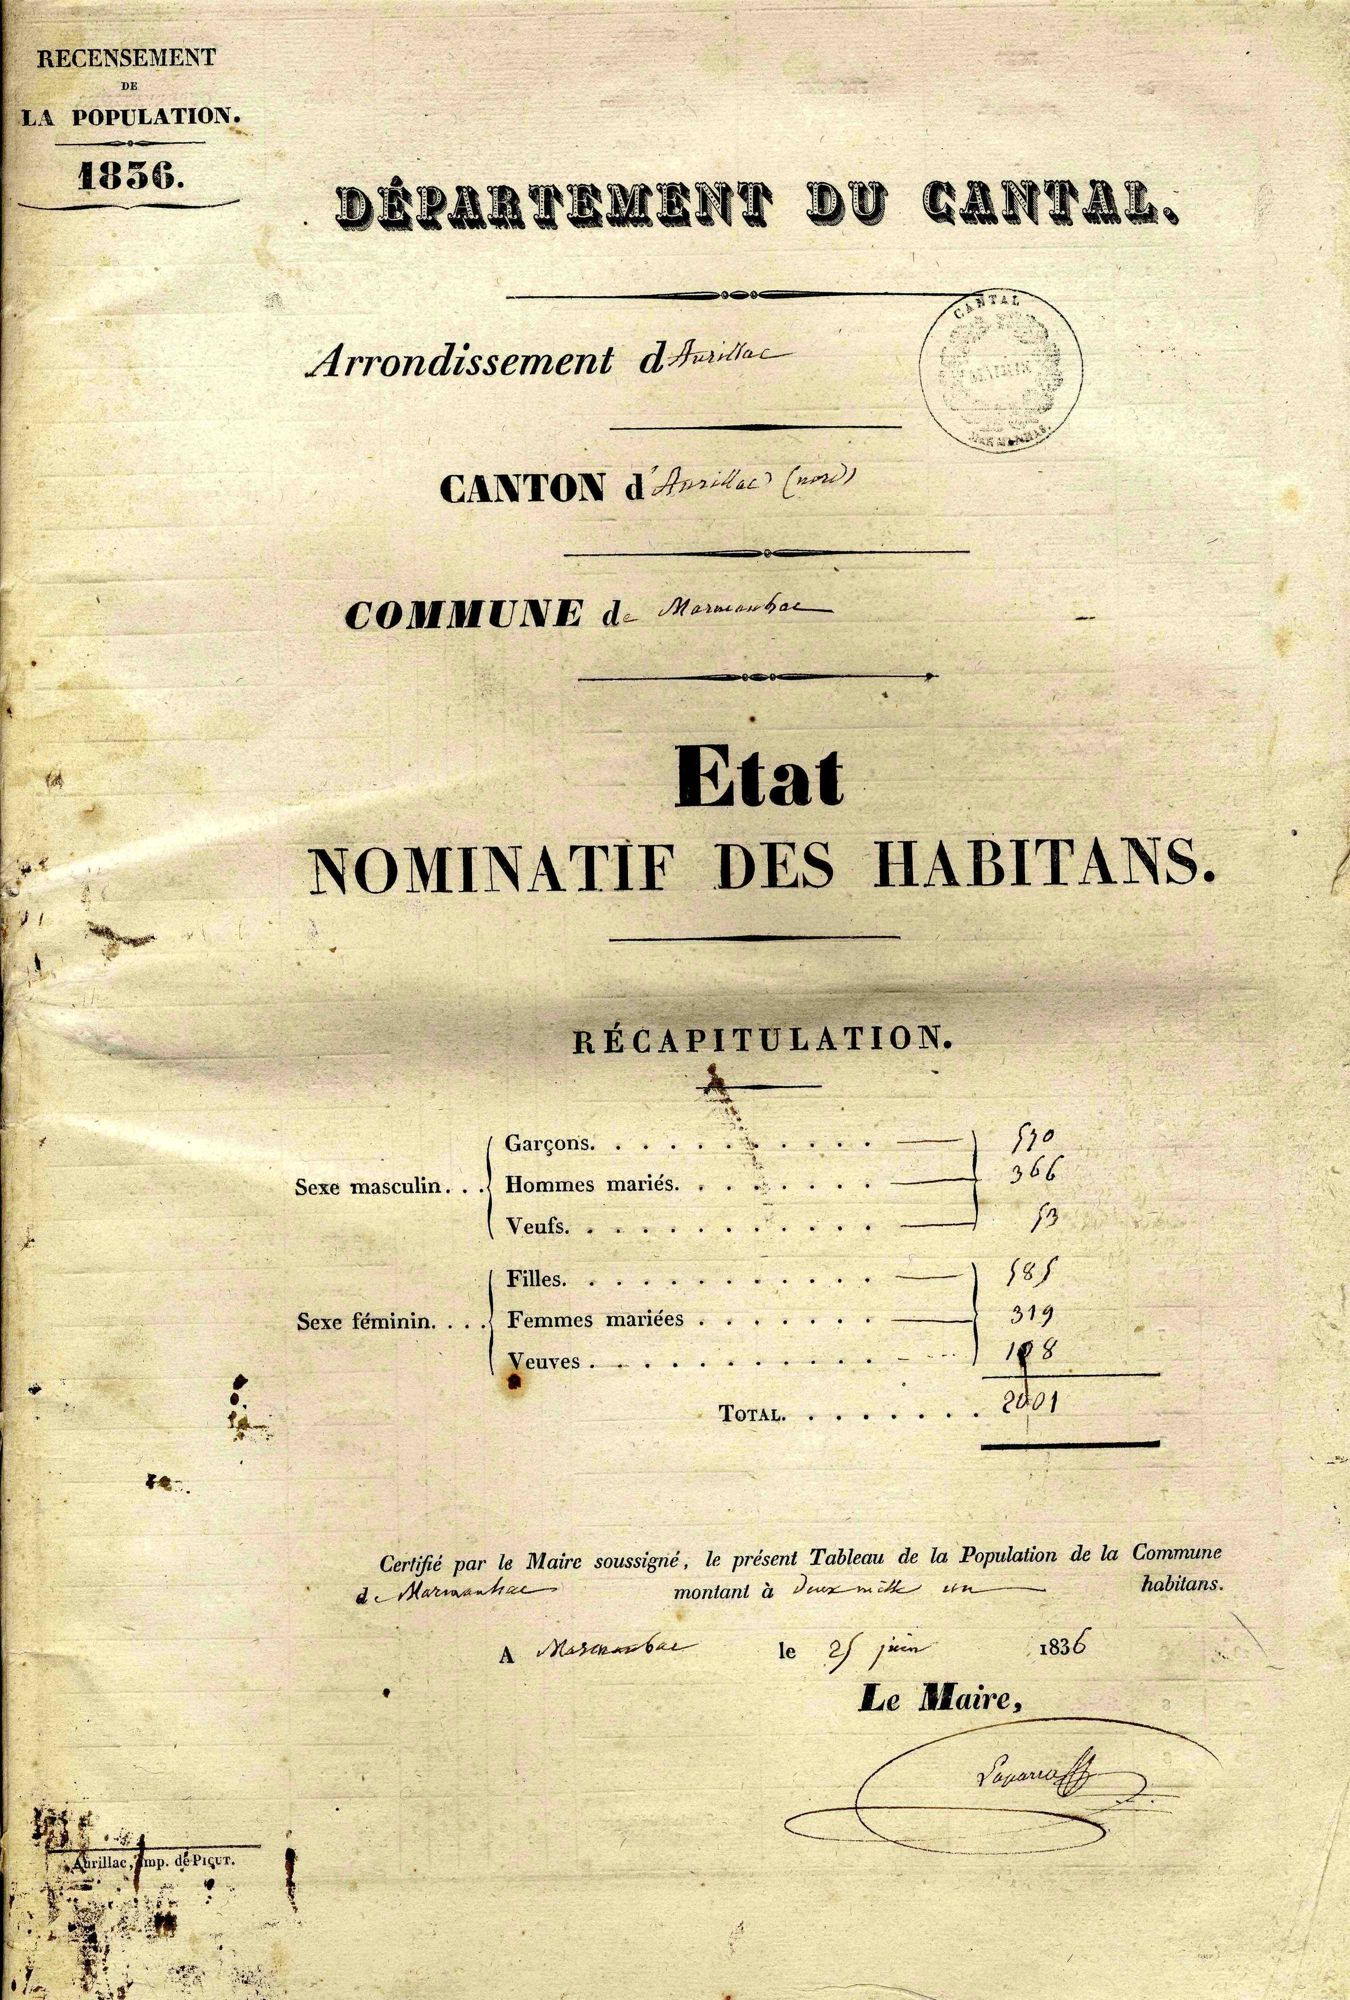 RECENSEMENT
DE
LA POPULATION.
1836.
DÉPARTEMENT DU CANTAL.
CANTAL
MAIRIE
Arrondissement d'Aurillac
CANTON d'Aurillac (nord)
COMMUNE de Marmanhac
Etat
NOMINATIF DES HABITANS.
RÉCAPITULATION.
Sexe masculin...
Garçons. 570
Hommes mariés. 366
Veufs. 53
Sexe féminin....
Filles. 585
Femmes mariées 319
Veuves. 108
TOTAL. 2001
Certifié par le Maire soussigné, le présent Tableau de la Population de la Commune
de Marmanhac montant à deux mille un habitans.
A Marmanhac le 25 juin 1836
Le Maire,
Aurillac, imp. de PICUT.